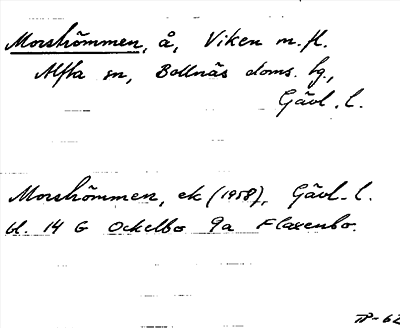 Morströmmen, å, Viken m.fl.
Alfta sn, Bollnäs doms. tg.,
Gävl. l.
Morströmmen, ek (1958), Gävl. l.
bl. 14 G Ockelbo 9a Flaxenbo.
TP-62